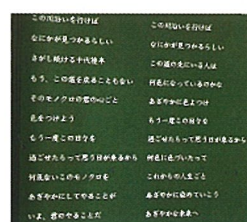 この川沿いを行けば
なにかが見つかるらしい
さがし続ける十代後半
もう、この道を戻ることもない
そのモノクロの君の心ごと
色をつけよう
もう一度この日々を
過ごせたらって思う日が来るから
何気ないこのモノクロを
あざやかにしてやることが
いま、君のやることだ
この川沿いを行けば
なにかが見つかるらしい
この道の先にいる人は
何色になっているのかな
あざやかに色よつけ
もう一度この日々を
過ごせたらって思う日が来るから
何色に色づいたって
これからの人生ごと
あざやかに染めていこう
あざやかな未来へ